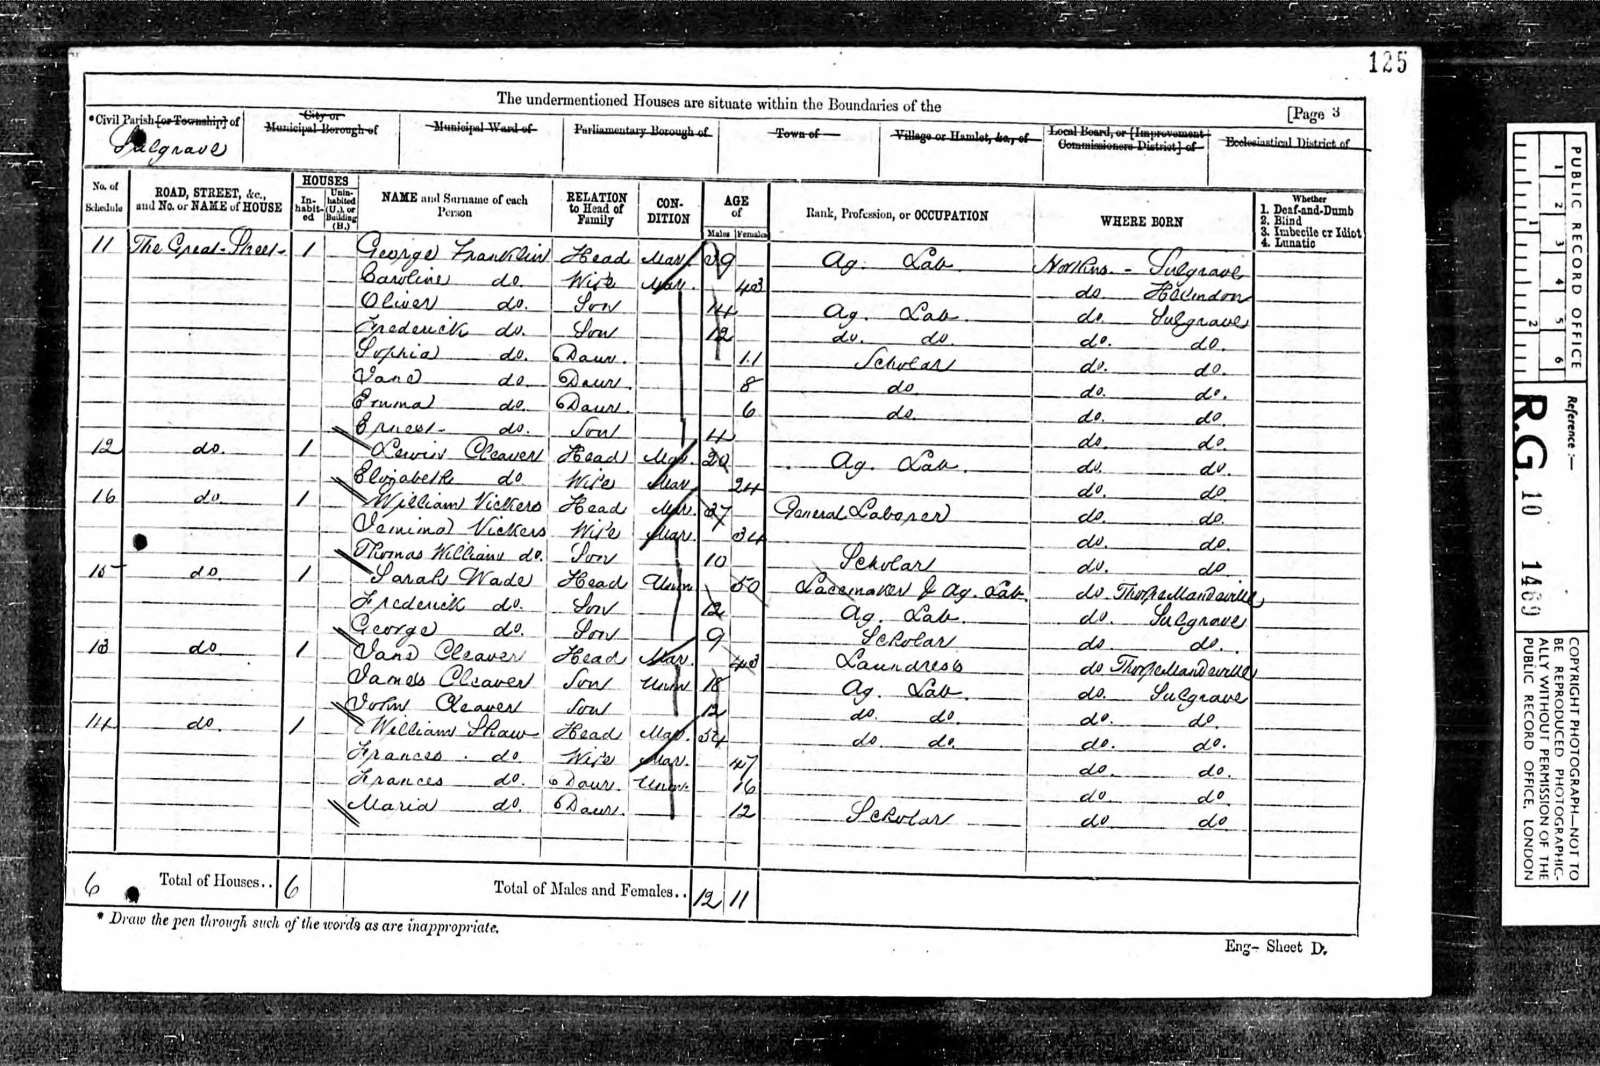 125
The undermentioned Houses are situate within the Boundaries of the
[Page 3
*Civil Parish [or Township] of
City or Municipal Borough of
Municipal Ward of
Parliamentary Borough of
Town of
Village or Hamlet, &c., of
Local Board, or [Improvement Commissioners District] of
Ecclesiastical District of
Sulgrave
No. of Schedule
ROAD, STREET, &c., and No. or NAME of HOUSE
HOUSES
In-habit-ed
Unin-habited (U.), or Building (B.)
NAME and Surname of each Person
RELATION to Head of Family
CON-DITION
AGE of
Males
Females
Rank, Profession, or OCCUPATION
WHERE BORN
Whether
1. Deaf-and-Dumb
2. Blind
3. Imbecile or Idiot
4. Lunatic
11 The Great Street 1 George Franklin Head Mar. 39 Ag. Lab Northns. - Sulgrave
Caroline do. Wife Mar. 43 do
Oliver do. Son 14 Ag. Lab. do. Sulgrave
Frederick do. Son 12 do. do. do. do.
Sophia do. Daur. 11 Scholar do. do.
Jane do. Daur. 8 do. do. do.
Emma do. Daur. 6 do. do. do.
Ernest do. Son 4 do. do.
12 do. 1 Lewin Cleaver Head Mar. 20 Ag. Lab. do. do.
Elizabeth do Wife Mar. 24 do. do
16 do. 1 William Vickers Head Mar. 37 General Laborer do. do.
Jemima Vickers Wife Mar. 34 do. do.
Thomas William do. Son 10 Scholar do. do
15 do. 1 Sarah Wade Head Unm. 50 Lacemaker & Ag. Lab. do. Thorpe Mandeville
Frederick do. Son 12 Ag. Lab. do. Sulgrave
George do. Son 9 Scholar do do.
13 do 1 Jane Cleaver Head Mar. 43 Laundress do Thorpe Mandeville
James Cleaver Son Unm 18 Ag. Lab. do. Sulgrave
John Cleaver Son 12 do. do. do. do.
14 do. 1 William Shaw Head Mar. 54 do. do. do. do.
Frances do. Wife Mar. 47 do. do.
Frances do. Daur. Unm. 16 do. do
Maria do. Daur. 12 Scholar do do
6 Total of Houses.. 6 Total of Males and Females.. 12 11
* Draw the pen through such of the words as are inappropriate.
Eng- Sheet D.
PUBLIC RECORD OFFICE
1 2 3 4 5 6
1 2
Reference :-
R.G. 10 1489
COPYRIGHT PHOTOGRAPH—NOT TO
BE REPRODUCED PHOTOGRAPHIC-
ALLY WITHOUT PERMISSION OF THE
PUBLIC RECORD OFFICE, LONDON